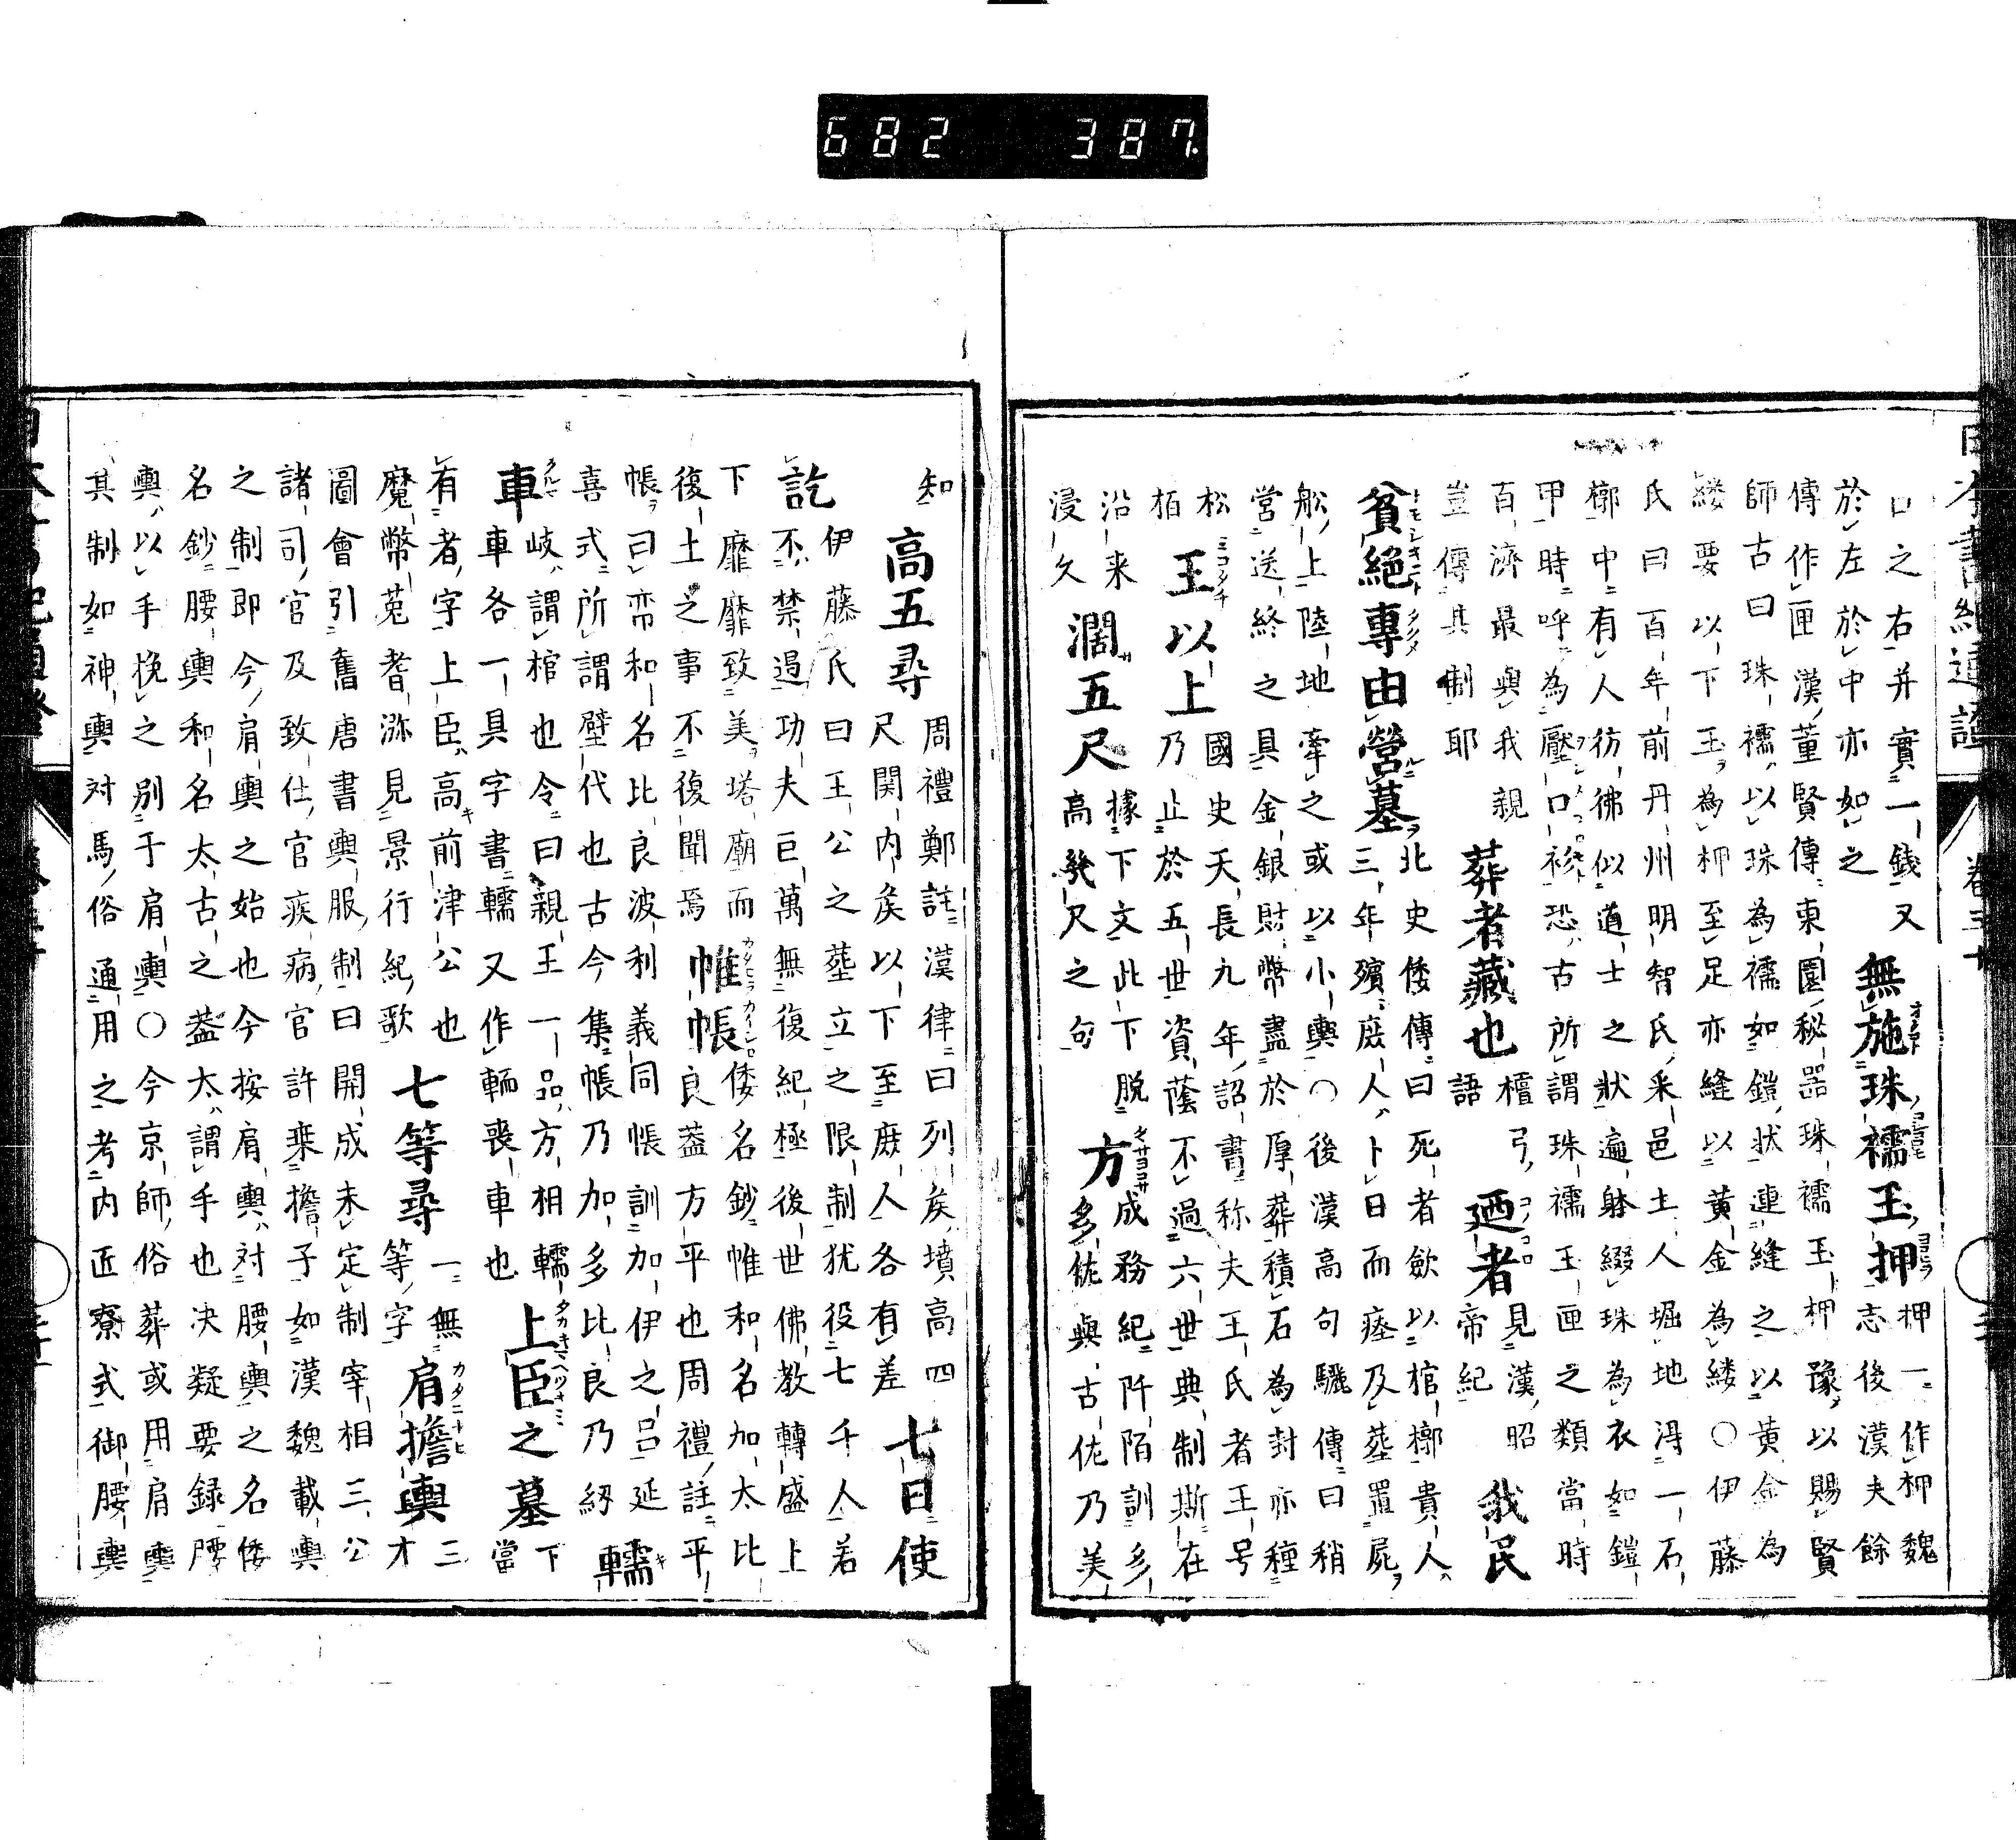 口之右并實一錢又
於左於中亦如之
無施珠襦玉押
押一作柙魏
志後漢夫餘
傳作匣漢董賢傳東園秘器珠襦玉柙豫以賜賢
師古曰珠襦以珠為襦如鎧狀連縫之以黄金為
縷要以下玉為柙至足亦縫以黄金為縷○伊藤
氏曰百年前丹州明智氏釆邑土人堀地淂一石
槨中有人彷彿似道士之狀遍躰綴珠為衣如鎧
甲時呼為壓口袗恐古所謂珠襦玉匣之類當時
百濟最與我親
豈傳其制耶
葬者藏也
檀弓
語
廼者
見漢昭
帝紀
我民
貧絶專由營墓
北史倭傳曰死者歛以棺槨貴人
三年殯庶人卜日而瘞及葬置屍
舩上陸地牽之或以小輿○後漢高句驪傳曰稍
営送終之具金銀財幣盡於厚葬積石為封亦種
松
栢
王以上
國史天長九年詔書称夫王氏者王号
乃止於五世資蔭不過六世典制斯在
沿来
浸久
濶五尺
據下文此下脱
高幾尺之句
方
成務紀阡陌訓多
多佐與古佐乃美
知
高五尋
周禮鄭註漢律曰列矦墳高四
尺関内矦以下至庶人各有差
七日使
訖
伊藤氏曰王公之葬立之限制犹役七千人若
不禁過功夫巨萬無復紀極後世佛教轉盛上
下靡靡致美塔廟而
復土之事不復聞焉
帷帳
倭名鈔帷和名加太比
良盖方平也周禮註平
帳曰帟和名比良波利義同帳訓加伊之呂延
喜式所謂壁代也古今集帳乃加多比良乃紐
轜
車
岐謂棺也令曰親王一品方相轜
車各一具字書轜又作輀喪車也
上臣之墓
下
當
有者字上臣高前津公也
魔幣菟耆瀰見景行紀歌
七等尋
一無
等字
肩擔輿
三
才
圖會引舊唐書輿服制曰開成末定制宰相三公
諸司官及致仕官疾病官許乗擔子如漢魏載輿
之制即今肩輿之始也今按肩輿対腰輿之名倭
名鈔腰輿和名太古之盖太謂手也决疑要録腰
輿以手挽之別于肩輿○今京師俗葬或用肩輿
其制如神輿対馬俗通用之考内匠寮式御腰輿
682 387